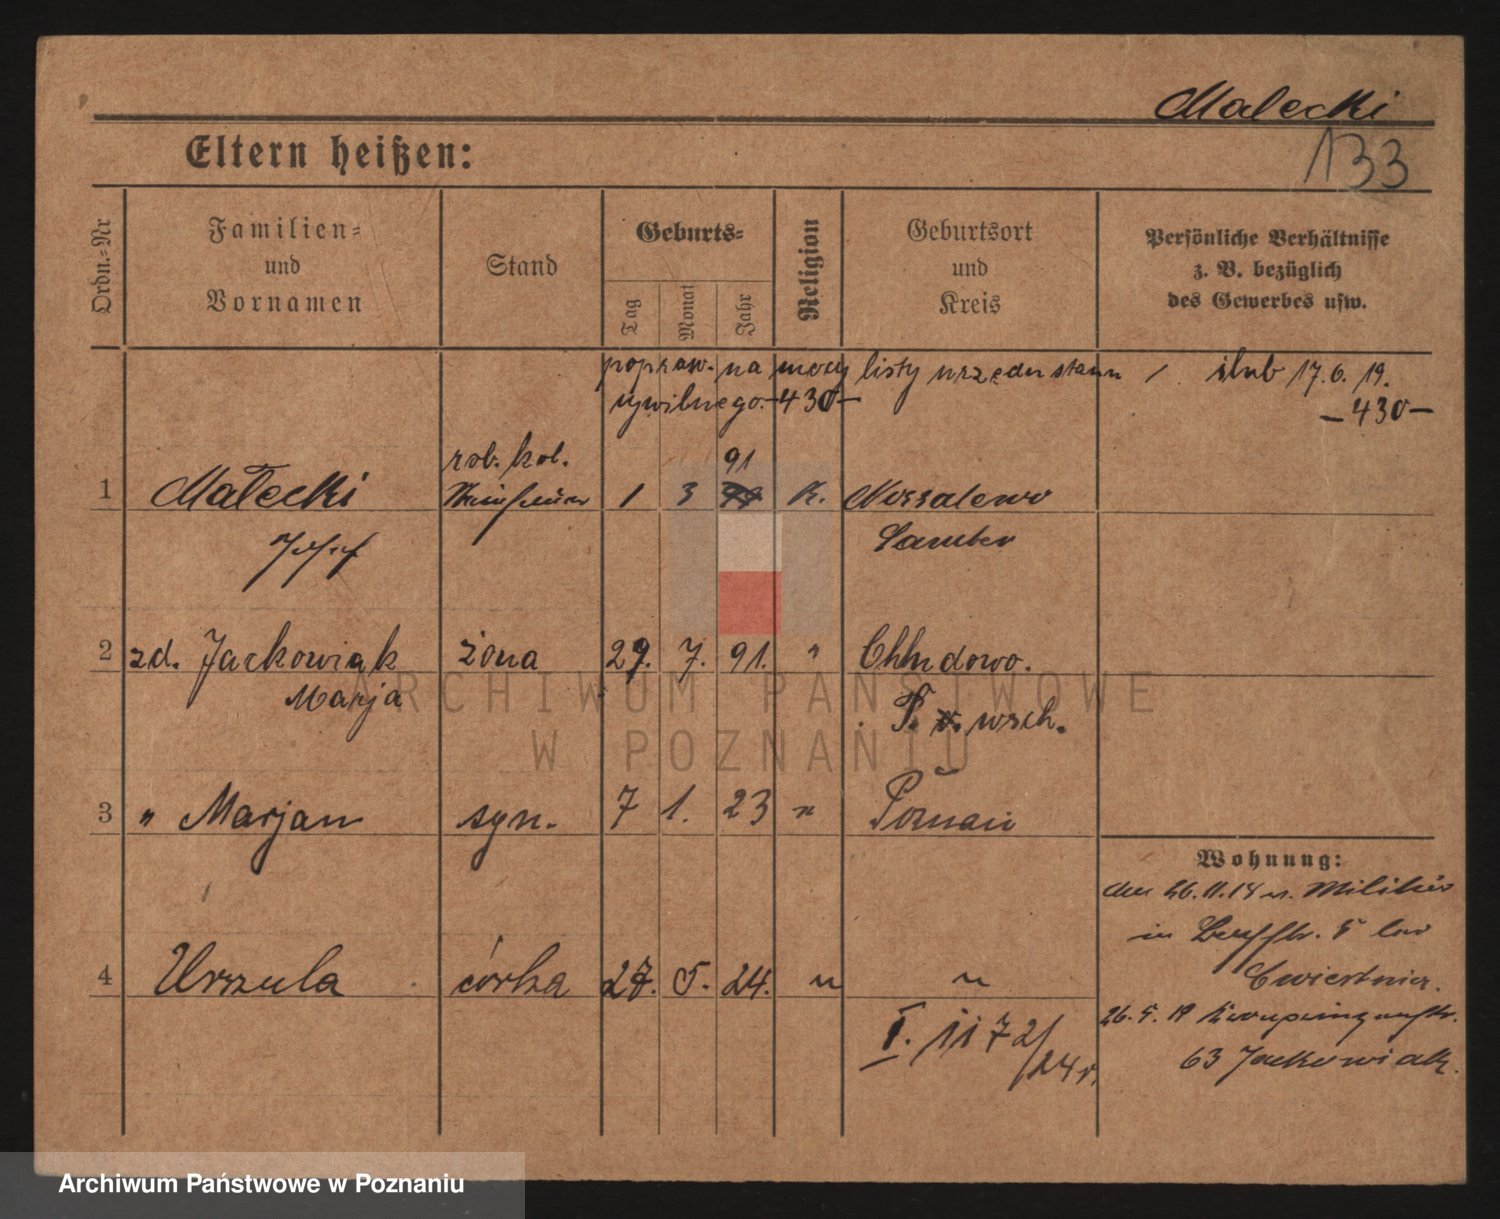 Malecki
133
Eltern heißen:
Ordn.-Nr
Familien-
und
Vornamen
Stand
Geburts-
Tag
Monat
Jahr
Religion
Geburtsort
und
Kreis
Persönliche Verhältnisse
z. B. bezüglich
des Gewerbes usw.
popraw. na mocy listy urzędu stanu / ślub 17.6.19.
cywilnego. -430- -430-
rob. kol. 91
1 Małecki 1 3 K.
Józef Samter
2 zd. Jackowiak żona 29. 7. 91. "
Marja P. wsch.
3 " Marjan syn. 7 1. 23 " Poznań
Wohnung:
26.11.18 v. Militär
in 5 bei
4 Urszula córka 27. 5. 24. " "
Cwiertnia.
26.5.19 Kronprinzenstr.
I. 1172/24 r.
63 Jackowiak.
ARCHIWUM PAŃSTWOWE
W POZNANIU
Archiwum Państwowe w Poznaniu